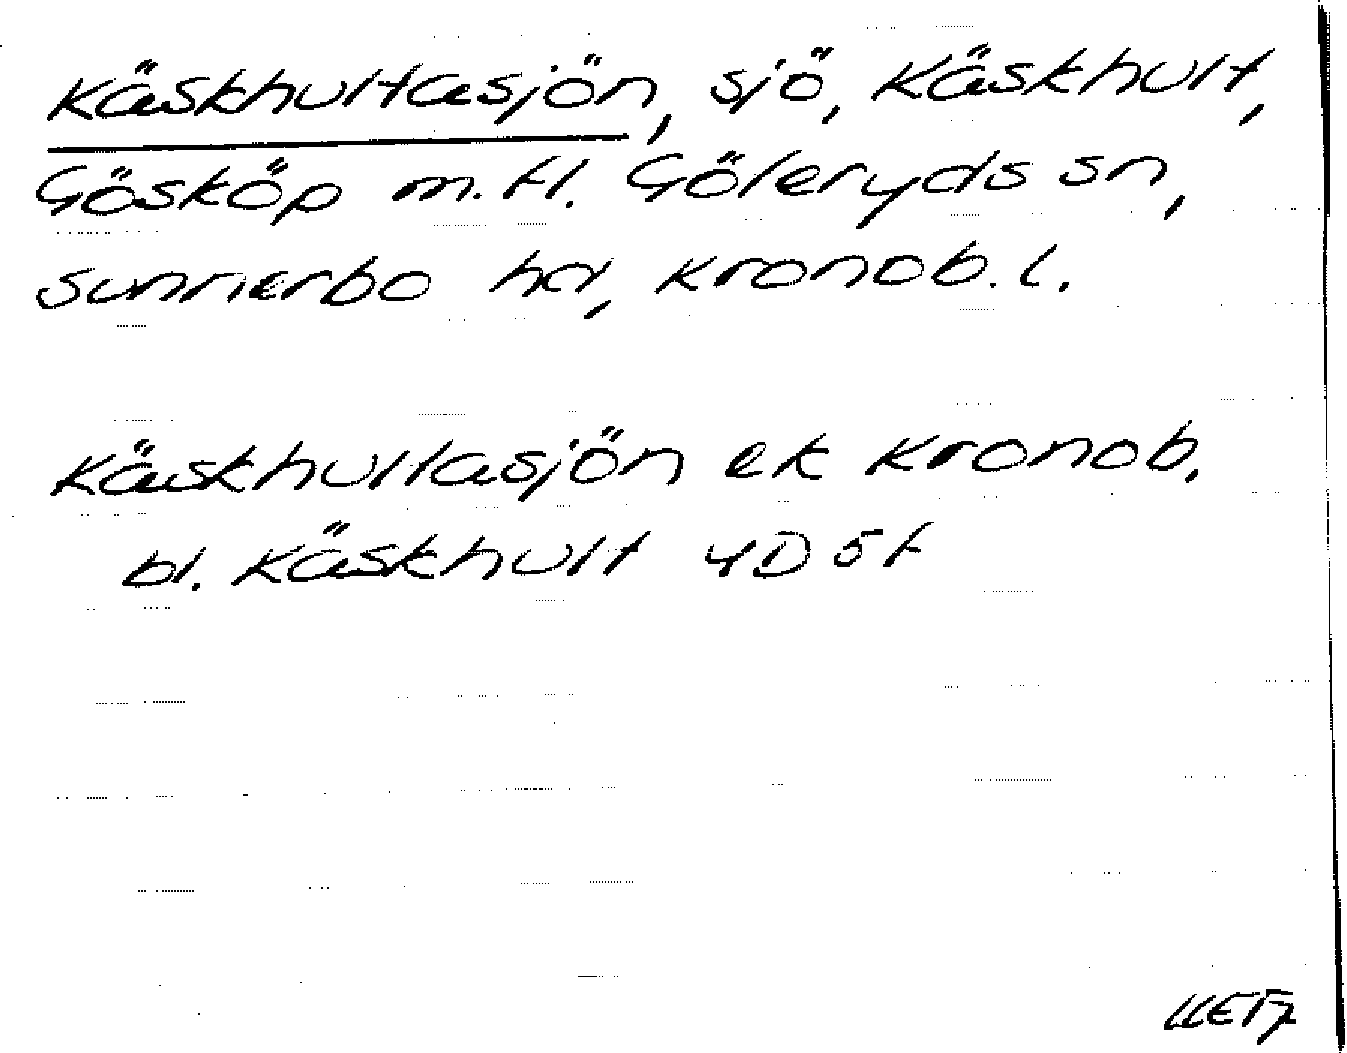 Käskhultasjön, sjö, Käskhult,
Gösköp m. fl. Göteryds sn,
Sunnerbo hd, Kronob. l.
Käskhultasjön ek Kronob.
bl. Käskhult 4D 5f